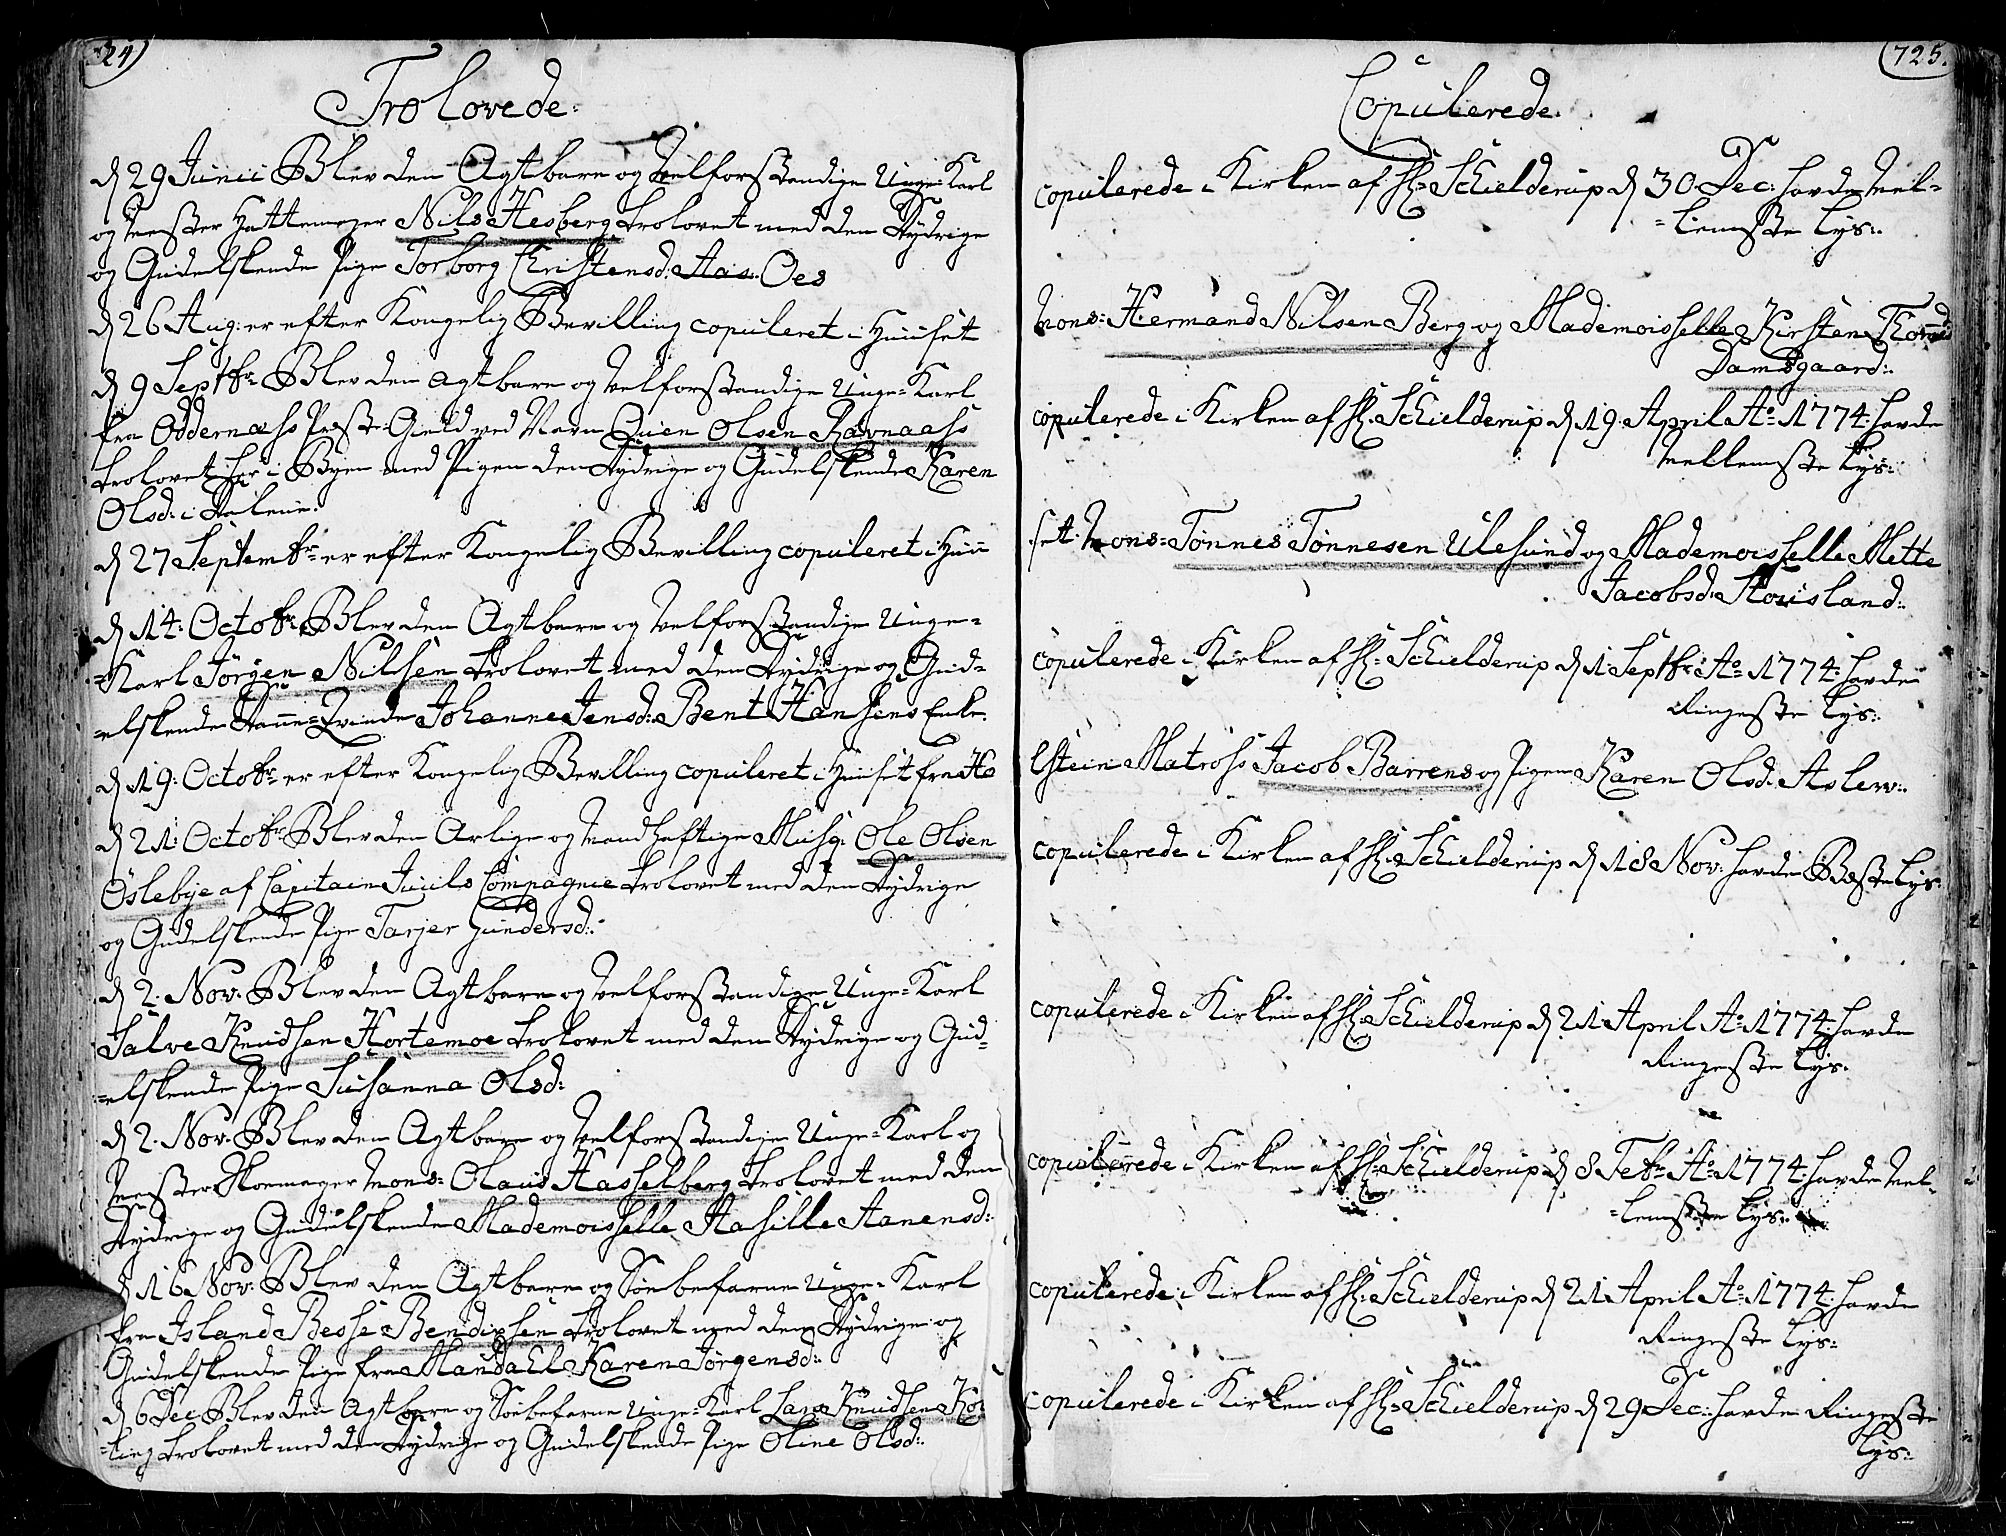 724)
Trolovede:
d 29 Junii Blev den Agtbare og Velforstandige Unge Karl
og Mester Hattemager Nils Hesberg trolovet med den Dydrige
og Gudelskende Pige Torborg Christensd: Aas: Oes
d 26 Aug: er efter Kongelig Bevilling copuleret i Huuset
d 9 Septbr: Blev den agtbare og Velforstandige Unge=Karl
fra Oddernæss Præste-Gield ved Navn Guien Olsen Ravnaass
trolovet her i Byen med Pigen den Dydrige og Gudelskende Karen
Olsd: i Dalene:
d 27 Septembr: er efter Kongelig Bevilling copuleret i Huu
d 14: Octobr: Blev den Agtbare og Velforstandige Unge=
=Karl Jørgen Nilsen trolovet med den Dydrige og Gud=
=elskende Danne=Qvinde Johanne Jensd: Bent Hansens Enke.
d 19: Octobr: er efter Kongelig Bevilling copuleret i Huuset fra Ho
d 21: Octobr: Blev den Ærlige og Mandhaftige Musq: Ole Olsen
Oslebye af Capitain Juuls Compagnie trolovet med den Dydrige
og Gudelskende Pige Tarjer Gundersd:
d 2. Nov: Blev den Agtbare og Velforstandige Unge=Karl
Salve Knudsen Hortemoe trolovet med den Dydrige og Gud=
=elskende Pige Susanna Olsd:
d 2. Nov: Blev den Agtbare og Velforstandige Unge=Karl og
Mester Skoemager Mons: Olaus Hasselberg trolovet med den
Dydrige og Gudelskende Mademoisselle Aasille Aanensd:
d 16 Nov: Blev den Agtbare og Søebefarne Unge=Karl
fra Island Besse Bendixsen trolovet med den Dydrige og
Gudelskende Pige fra Mandahl Karen Jørgensd:
d 6 Dec Blev den Agtbare og Søebefarne Unge=Karl Lars Knudsen
trolovet med den Dydrige og Gudelskende Pige Oline Olsd:
725.
Copulerede.
copulerede i Kirken af H: Schielderup d 30 Dec: havde Mel=
=lemste Lys:
Mons: Hermand Nilsen Berg og Mademoisselle Kirsten
Damsgaard:
copulerede i Kirken af H: Schielderup d 19 April Ao 1774: havde
Mellemste Lys:
set Mons: Tønnes Tønnesen Ulesund og Mademoisselle Mette
Jacobsd:
copulerede i Kirken af H: Schielderup d 1 Septbr: Ao 1774: havde
Ringeste Lys:
lstein Matross Jacob Barrens og Pigen Karen Olsd: Aslew:
copulerede i Kirken af H: Schielderup d 18 Nov: havde Beste Lys:
copulerede i Kirken af H: Schielderup d 21 April Ao 1774: havde
Ringeste Lys:
copulerede i Kirken af H: Schielderup d 8 Febr: Ao 1774: havde Mel=
=lemste Lys:
copulerede i Kirken af H: Schielderup d 21 April Ao 1774: havde
Ringeste Lys:
copulerede i Kirken af H: Schielderup d 29 Dec: havde Ringeste
Lys: